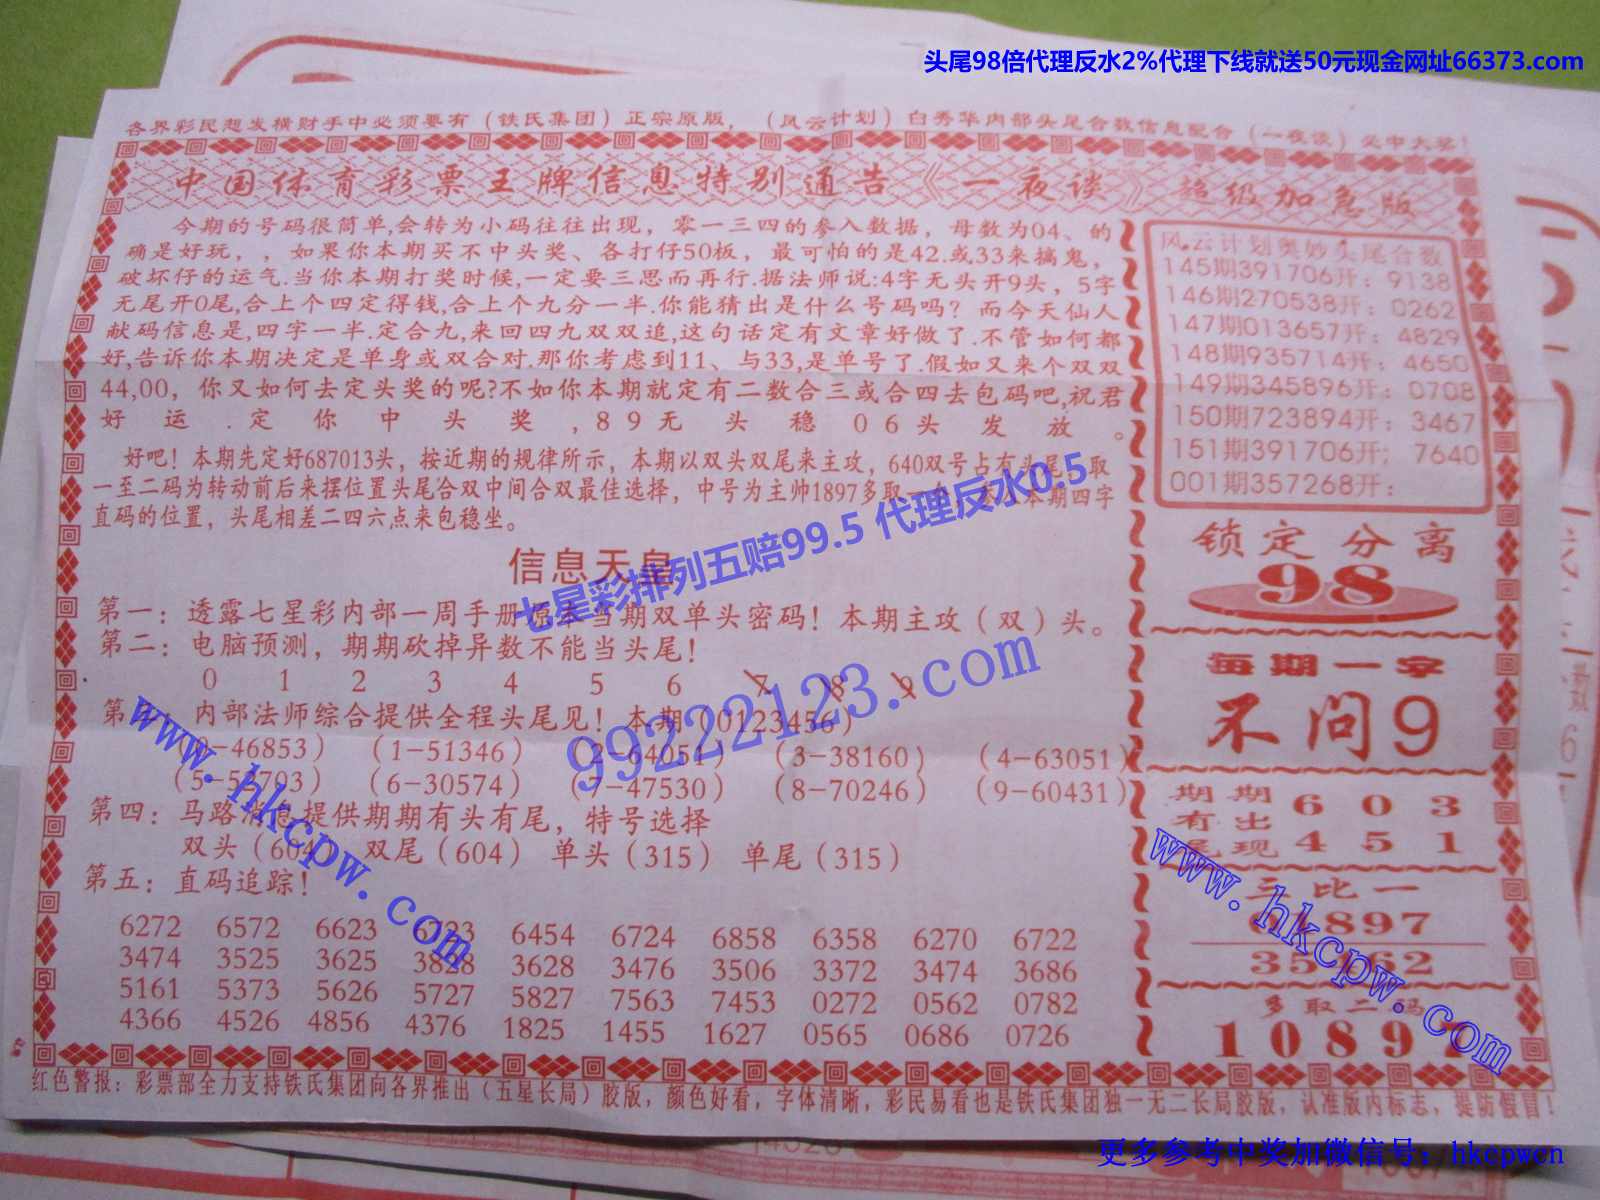 头尾98倍代理反水2%代理下线就送50元现金网址66373.com
各界彩民想发横财手中必须要有（铁氏集团）正宗原版，（风云计划）白秀华内部头尾合数信息配合（一夜谈）必中大奖！
中国体育彩票王牌信息特别通告《一夜谈》超级加急版
今期的号码很简单,会转为小码往往出现，零一三四的参入数据，母数为04、的
确是好玩，，如果你本期买不中头奖、各打仔50板，最可怕的是42.或33来搞鬼，
破坏仔的运气.当你本期打奖时候,一定要三思而再行.据法师说:4字无头开9头，5字
无尾开0尾,合上个四定得钱,合上个九分一半.你能猜出是什么号码吗？而今天仙人
献码信息是,四字一半.定合九,来回四九双双追,这句话定有文章好做了.不管如何都
好,告诉你本期决定是单身或双合对.那你考虑到11、与33,是单号了.假如又来个双双
44,00，你又如何去定头奖的呢?不如你本期就定有二数合三或合四去包码吧,祝君
好运.定你中头奖,89无头稳06头发放。
好吧！本期先定好687013头，按近期的规律所示，本期以双头双尾来主攻，640双号占有头尾 取
一至二码为转动前后来摆位置头尾合双中间合双最佳选择，中号为主帅1897多取 本期四字
直码的位置，头尾相差二四六点来包稳坐。
信息天皇
七星彩排列五赔99.5 代理反水0.5
第一：透露七星彩内部一周手册 当期双单头密码！本期主攻（双）头。
第二：电脑预测，期期砍掉异数不能当头尾！
0 1 2 3 4 5 6 7 8 9
99222123.com
www.hkcpw.com
第三：内部法师综合提供全程头尾见！本期（0123456）
（0-46853）（1-51346）（2-64051）（3-38160）（4-63051）
（5-53703）（6-30574）（7-47530）（8-70246）（9-60431）
第四：马路消息提供期期有头有尾，特号选择
双头（604） 双尾（604） 单头（315） 单尾（315）
第五：直码追踪！
6272 6572 6623 6723 6454 6724 6858 6358 6270 6722
3474 3525 3625 3828 3628 3476 3506 3372 3474 3686
5161 5373 5626 5727 5827 7563 7453 0272 0562 0782
4366 4526 4856 4376 1825 1455 1627 0565 0686 0726
风云计划奥妙头尾合数
145期391706开：9138
146期270538开：0262
147期013657开：4829
148期935714开：4650
149期345896开：0708
150期723894开：3467
151期391706开：7640
001期357268开：
锁定分离
98
每期一字
不问9
期期 6 0 3
有出
尾现 4 5 1
三比一
897
62
www.hkcpw.com
多取二码
10897
红色警报：彩票部全力支持铁氏集团向各界推出（五星长局）胶版，颜色好看，字体清晰，彩民易看也是铁氏集团独一无二长局胶版，认准版内标志，提防假冒！
更多参考中奖加微信号：hkcpwcn